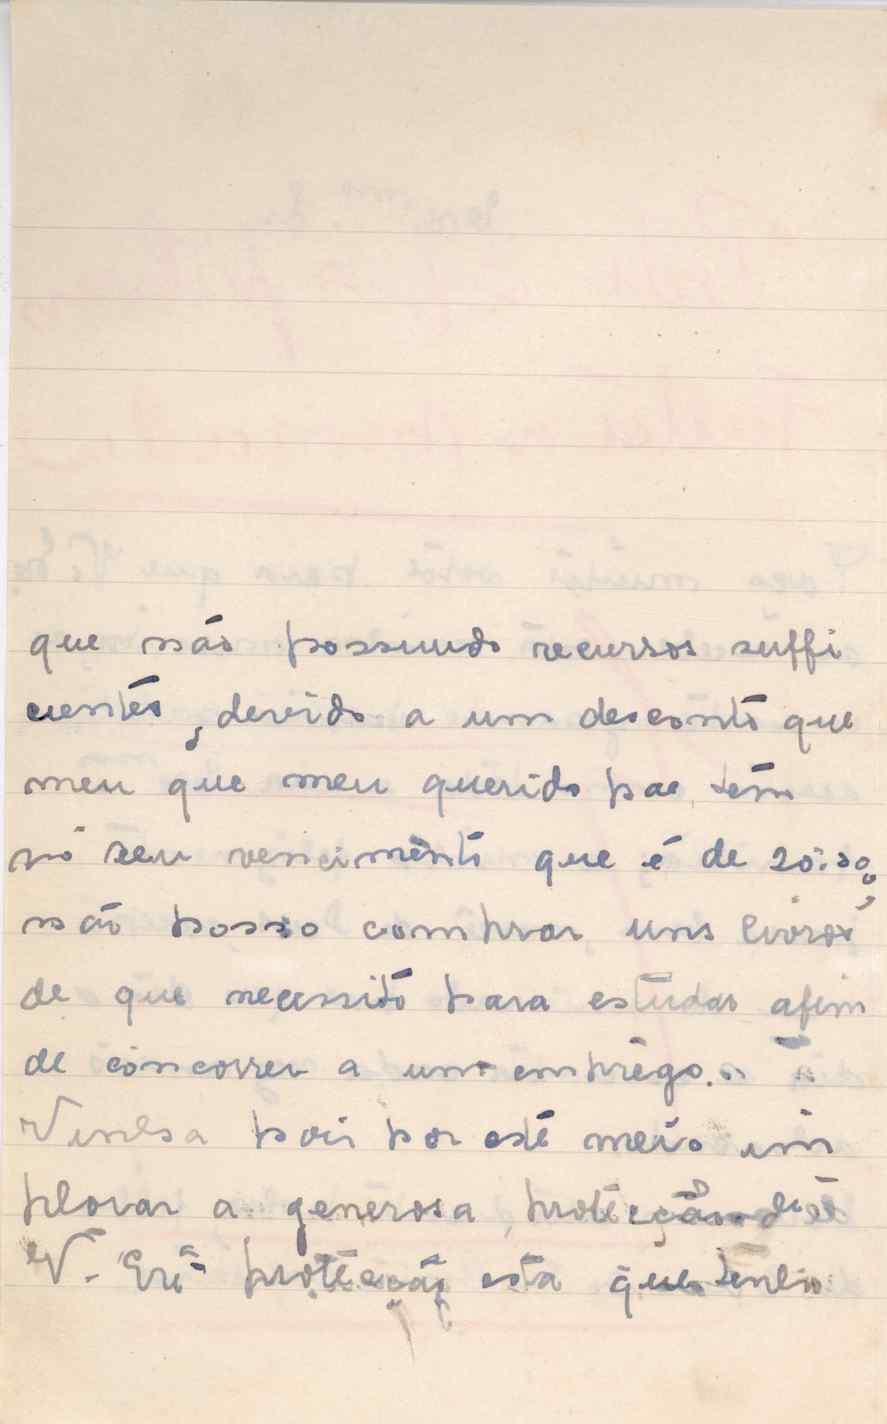 que não possuudo recursos suffi
cientes, devido a um desconto que
meu que meu querido pae tem
no seu vencimento que é de
não posso comprar uns livros
de que necessito para estudar afim
de concorrer a um emprêgo.
Venho pois por este meio im
plorar a generosa protecção de
V. Exª protecção esta que tenho